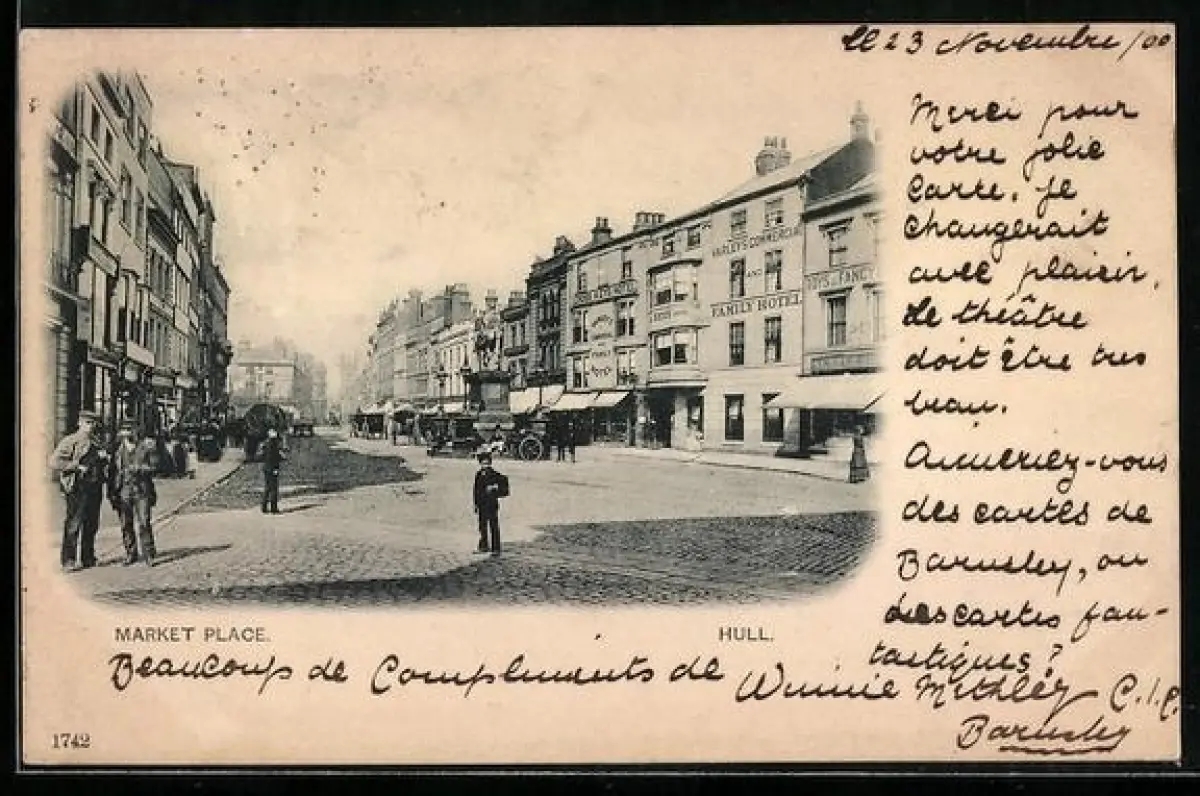 le 23 Novembre /00
Merci pour
votre jolie
Carte. Je
changerait
avec plaisir.
Le théâtre
doit être tres
beau.
Aimeriez-vous
des cartes de
Barnsley, ou
des cartes fan-
tastiques?
VARLEY'S COMMERCIAL
AND
FAMILY HOTEL
TOYS & FANCY
MARKET PLACE.
HULL.
Beaucoup de Compliments de Winnie Methley C.I.C.
Barnsley
1742